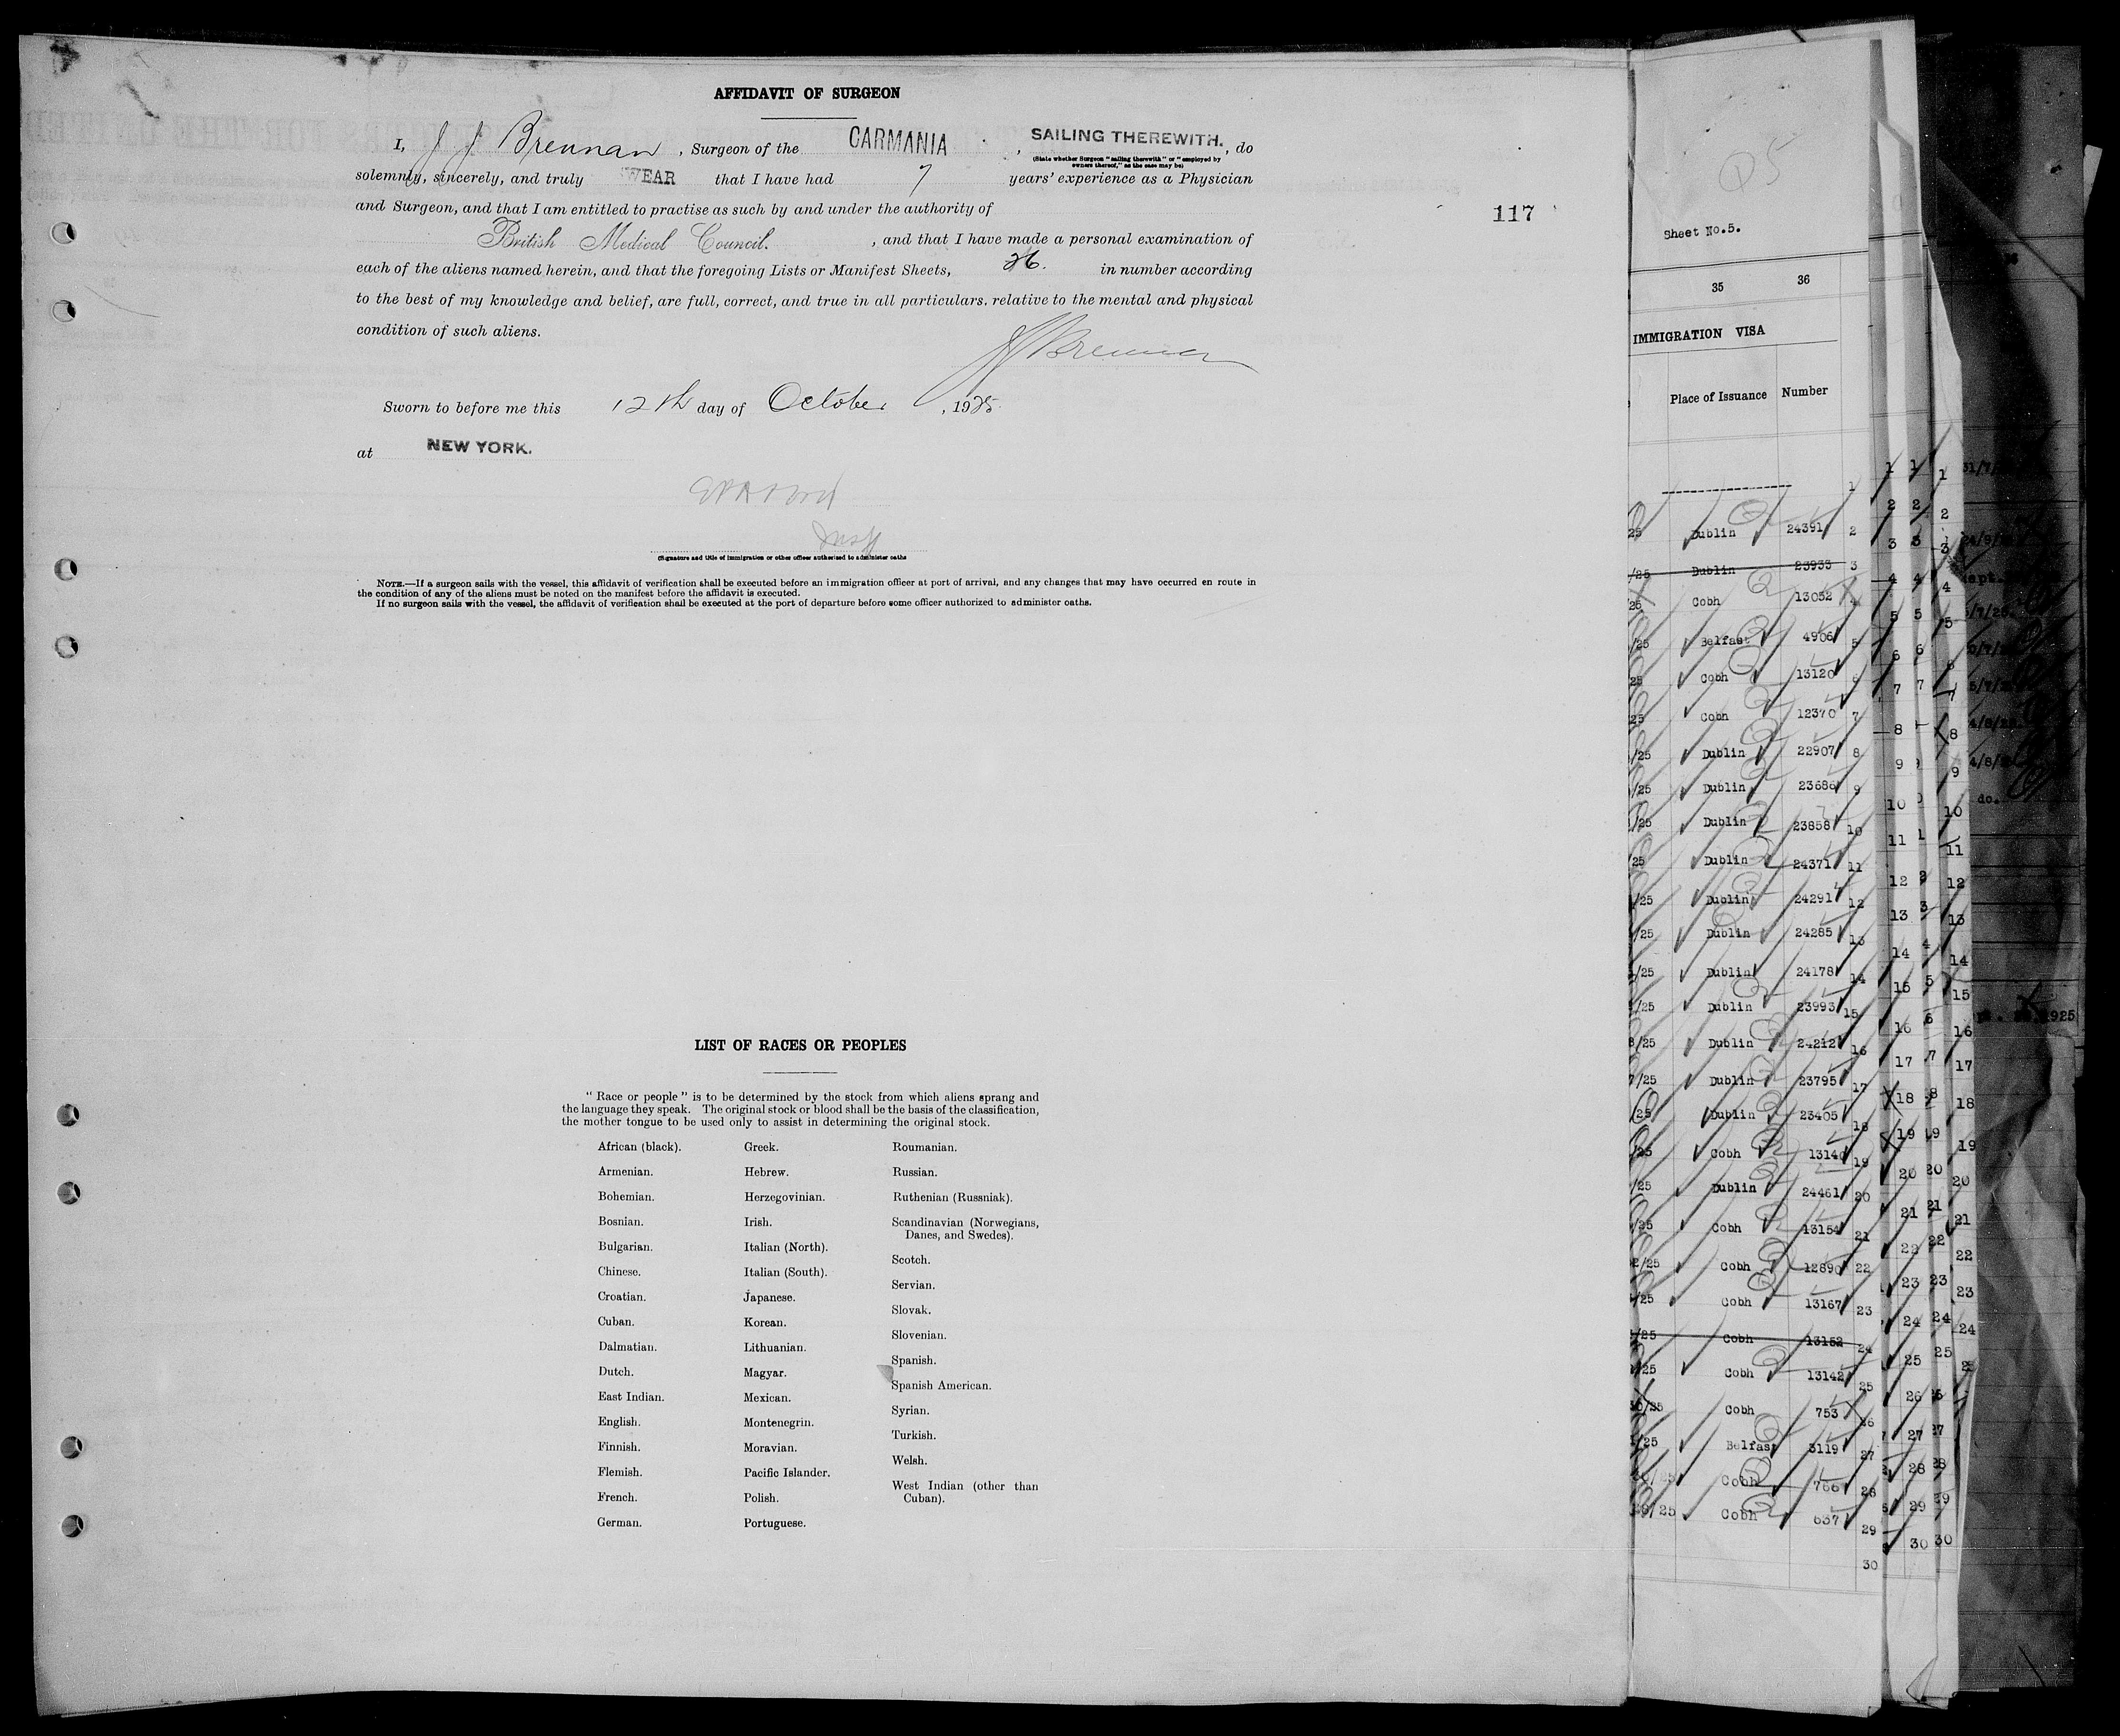 AFFIDAVIT OF SURGEON
I, J J Brennan, Surgeon of the CARMANIA, SAILING THEREWITH., do
(State whether Surgeon "sailing therewith" or "employed by
owners thereof," as the case may be)
solemnly, sincerely, and truly SWEAR that I have had 7 years' experience as a Physician
and Surgeon, and that I am entitled to practise as such by and under the authority of
British Medical Council., and that I have made a personal examination of
each of the aliens named herein, and that the foregoing Lists or Manifest Sheets, 26. in number according
to the best of my knowledge and belief, are full, correct, and true in all particulars. relative to the mental and physical
condition of such aliens.
J J Brennan
Sworn to before me this 12th day of October, 1925.
at NEW YORK.
(Signature and title of immigration or other officer authorised to administer oaths
NOTE.—If a surgeon sails with the vessel, this affidavit of verification shall be executed before an immigration officer at port of arrival, and any changes that may have occurred en route in
the condition of any of the aliens must be noted on the manifest before the affidavit is executed.
If no surgeon sails with the vessel, the affidavit of verification shall be executed at the port of departure before some officer authorized to administer oaths.
117
LIST OF RACES OR PEOPLES
"Race or people" is to be determined by the stock from which aliens sprang and
the language they speak. The original stock or blood shall be the basis of the classification,
the mother tongue to be used only to assist in determining the original stock.
African (black).
Armenian.
Bohemian.
Bosnian.
Bulgarian.
Chinese.
Croatian.
Cuban.
Dalmatian.
Dutch.
East Indian.
English.
Finnish.
Flemish.
French.
German.
Greek.
Hebrew.
Herzegovinian.
Irish.
Italian (North).
Italian (South).
Japanese.
Korean.
Lithuanian.
Magyar.
Mexican.
Montenegrin.
Moravian.
Pacific Islander.
Polish.
Portuguese.
Roumanian.
Russian.
Ruthenian (Russniak).
Scandinavian (Norwegians,
Danes, and Swedes).
Scotch.
Servian.
Slovak.
Slovenian.
Spanish.
Spanish American.
Syrian.
Turkish.
Welsh.
West Indian (other than
Cuban).
25
Sheet No.5.
35 36
IMMIGRATION VISA
Place of Issuance Number
1
25 Dublin 24391 2
/25 Dublin 23933 3
25 Cobh 13052 4
/25 Belfast 4906 5
25 Cobh 13120 6
25 Cobh 12370 7
/25 Dublin 22907 8
/25 Dublin 23686 9
/25 Dublin 23858 10
25 Dublin 24371 11
/25 Dublin 24291 12
/25 Dublin 24285 13
/25 Dublin 24178 14
/25 Dublin 23993 15
8/25 Dublin 24212 16
7/25 Dublin 23795 17
/25 Dublin 23405 18
/25 Cobh 13140 19
/25 Dublin 24461 20
/25 Cobh 13154 21
2/25 Cobh 12890 22
/25 Cobh 13167 23
/25 Cobh 13152 24
/25 Cobh 13142 25
/25 Cobh 753 26
/25 Belfast 3119 27
/25 Cobh 766 28
/25 Cobh 637 29
30